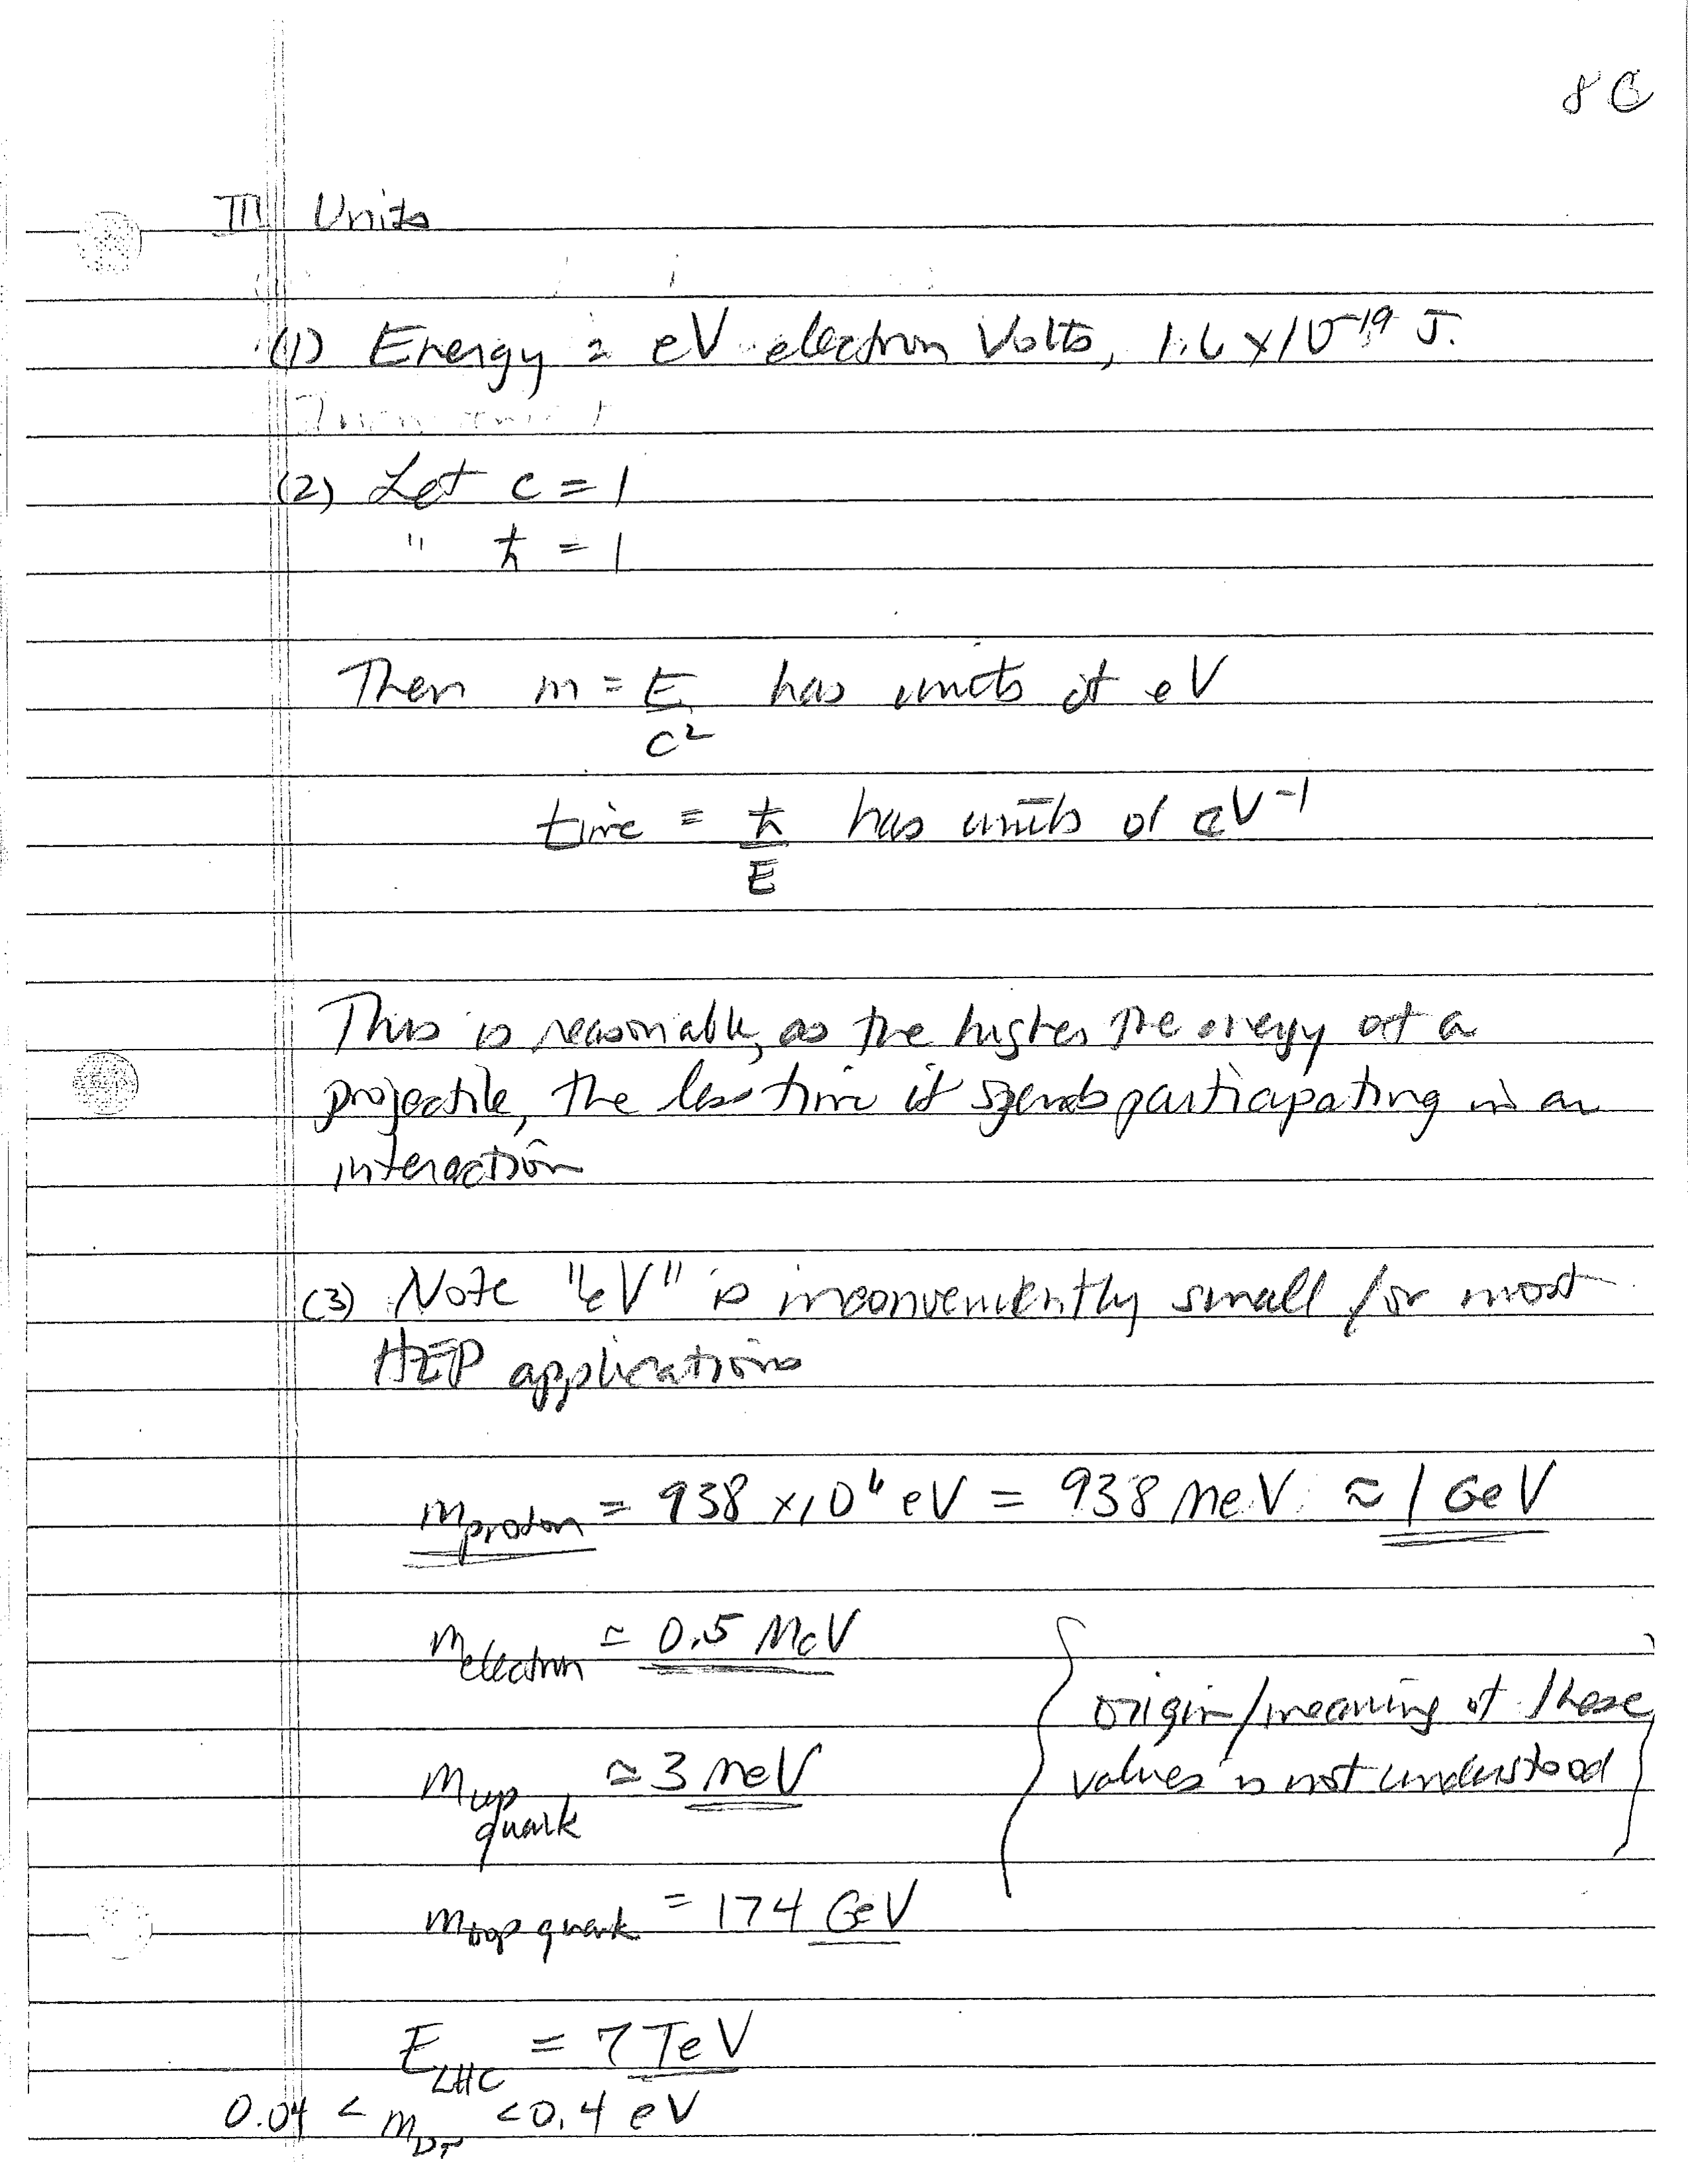 8C
III Units
(1) Energy = eV electron Volts, 1.6 x 10^-19 J.
(2) Let c = 1
" ħ = 1
Then m = E/c² has units of eV
time = ħ/E has units of eV^-1
This is reasonable, as the higher the energy of a
projectile, the less time it spends participating in an
interaction
(3) Note "eV" is inconveniently small for most
HEP applications
m proton = 938 x 10^6 eV = 938 MeV ≈ 1 GeV
m electron ≃ 0.5 MeV
origin/meaning of these
values is not understood
m up quark ≃ 3 MeV
m top quark = 174 GeV
E LHC = 7 TeV
0.04 < m < 0.4 eV